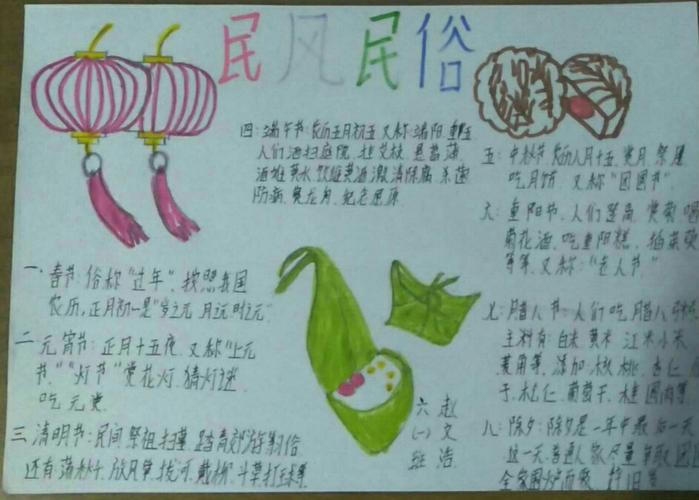 民风民俗
一、春节:俗称“过年”,按照我国
农历,正月初一是“岁之元,月之元,时之元”
二、元宵节:正月十五夜,又称“上元
节”“灯节”赏花灯,猜灯谜
吃元宵
三、清明节:民间祭祖扫墓,踏青郊游等习俗
还有荡秋千、放风筝、拔河、戴柳、斗草打球等
四:端午节:农历五月初五,又称端阳、重五
人们洒扫庭院,挂艾枝,悬菖蒲,
洒雄黄水,饮雄黄酒,激清除腐,杀菌
防病,赛龙舟,纪念屈原
五:中秋节,农历八月十五,赏月,祭月
吃月饼,又称“团圆节”
六:重阳节,人们登高,赏菊,喝
菊花酒,吃重阳糕,插茱萸
等等,又称:“老人节”
七:腊八节:人们吃腊八
主料有:白米,黄米,江米,小米
菱角等,添加核桃,杏仁
子,松仁,葡萄干,桂圆肉等
八:除夕:除夕是一年中最后一天
这一天,普通人家尽量争取团
全家围炉而聚,辞旧
六(一)班
赵文浩